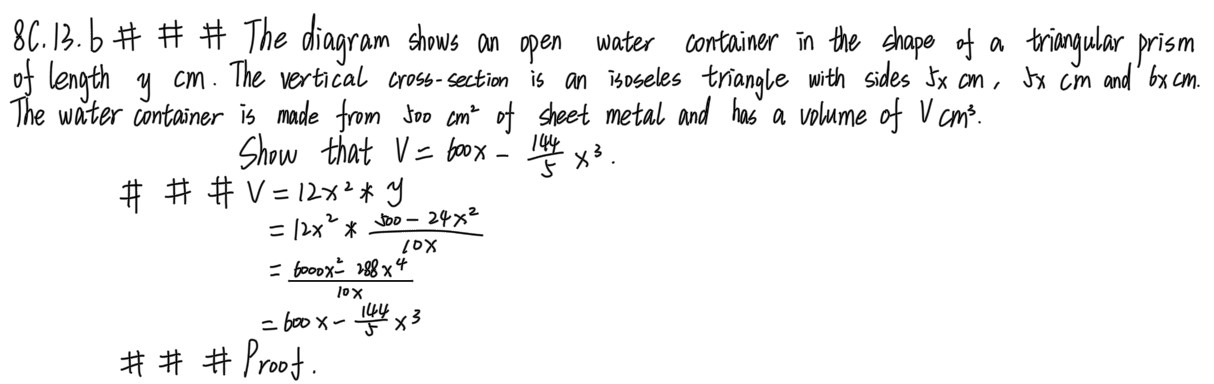 8C.13.b # # # The diagram shows an open water container in the shape of a triangular prism
of length y cm. The vertical cross-section is an isoseles triangle with sides 5x cm, 5x cm and 6x cm.
The water container is made from 500 cm² of sheet metal and has a volume of V cm³.
Show that V = 600x - \frac{144}{5} x³.
# # # V = 12x² * y
= 12x² * \frac{500 - 24x²}{10x}
= \frac{6000x² - 288x⁴}{10x}
= 600x - \frac{144}{5} x³
# # # Proof.